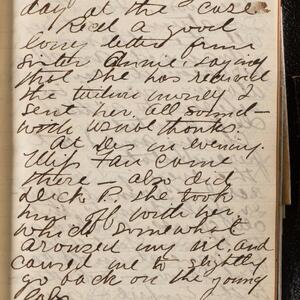 day at the case.
Recd a good
long letter from
sister Annie, saying
that she has received
the tuition money I
sent her. All sound-
words usual thanks.
At Des in evening.
Miss Fan came
there – also did
Dick P. She took
him off with her,
which somewhat
aroused my ire, and
caused me to slightly
go back on the young